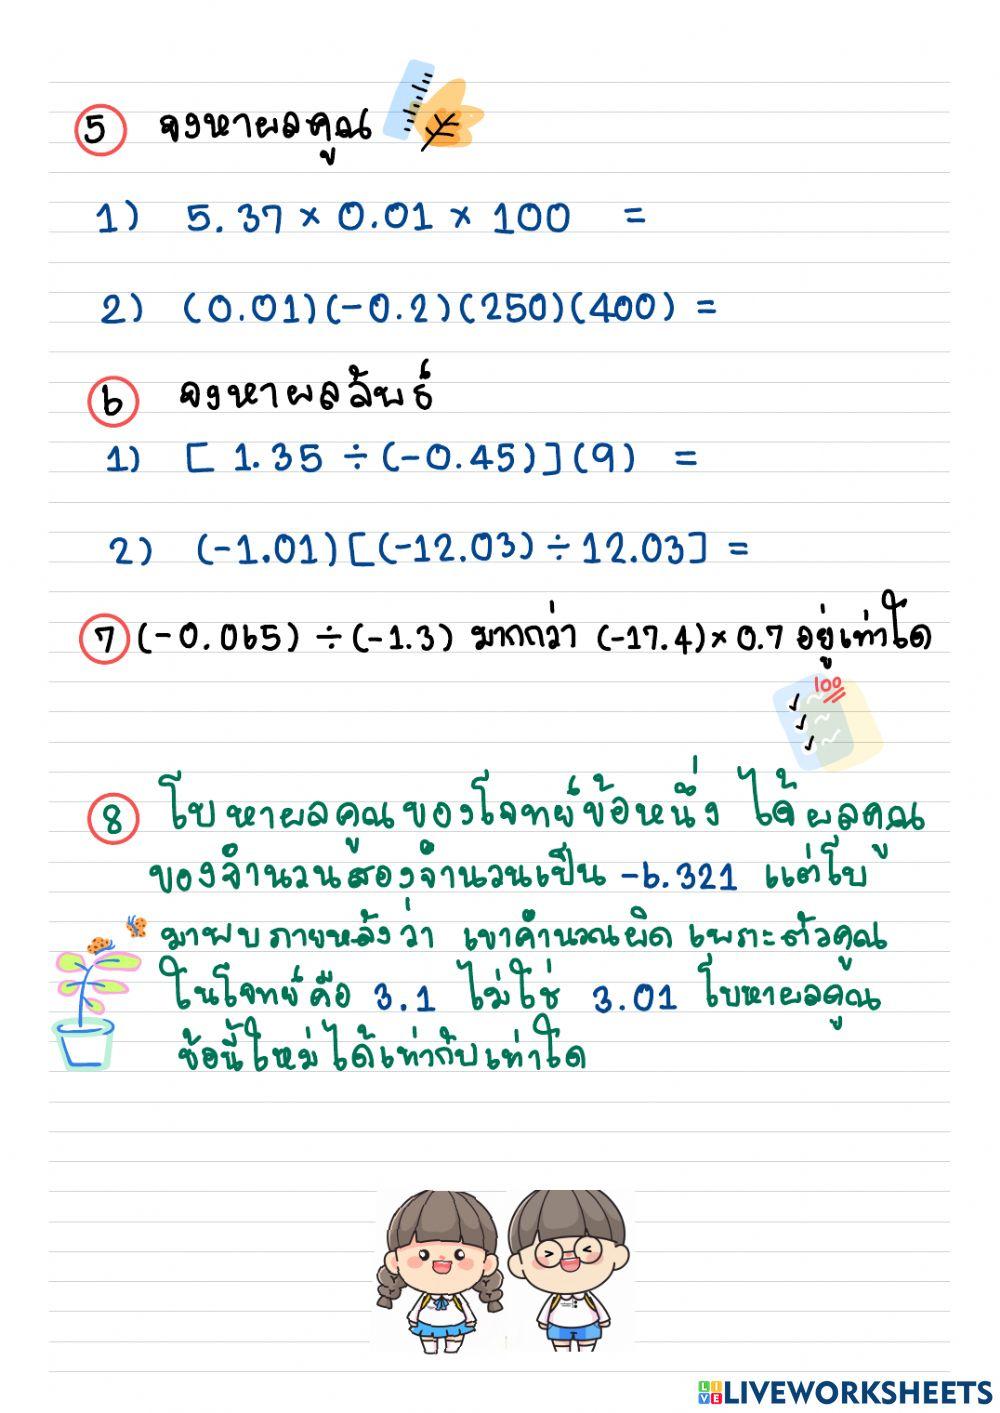 5 จงหาผลคูณ
1) 5.37 × 0.01 × 100 =
2) (0.01)(-0.2)(250)(400) =
6 จงหาผลลัพธ์
1) [1.35 ÷ (-0.45)](9) =
2) (-1.01)[(-12.03) ÷ 12.03] =
7 (-0.065) ÷ (-1.3) มากกว่า (-17.4) × 0.7 อยู่เท่าใด
100
8 โบหาผลคูณของโจทย์ข้อหนึ่ง ได้ผลคูณ
ของจำนวนสองจำนวนเป็น -6.321 แต่โบ
มาพบภายหลังว่า เขาคำนวณผิด เพราะตัวคูณ
ในโจทย์คือ 3.1 ไม่ใช่ 3.01 โบหาผลคูณ
ข้อนี้ใหม่ได้เท่ากับเท่าใด
LIVE LIVEWORKSHEETS